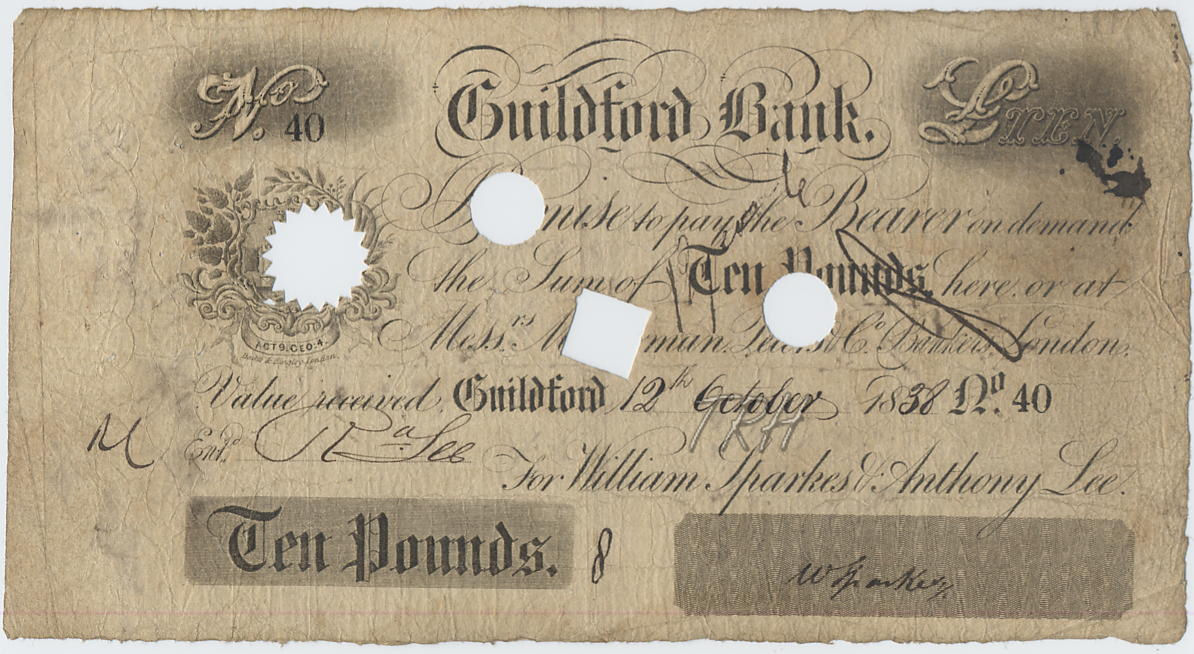 No. 40
Guildford Bank.
£TEN.
to pay the Bearer on demand
the Sum of Ten Pounds, here or at
Messrs. & Co. Bankers, London.
ACT 9. GEO. 4.
Value received, Guildford 12th October 1838 No. 40
Entd.
Lee
For William Sparkes & Anthony Lee.
Ten Pounds.
8
W Sparkes